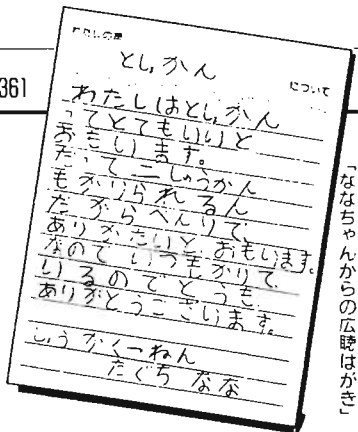 361
わたしの夢
としょかん
について
わたしはとしょかん
ってとてもいいと
おもいます。
だって二しゅうかん
もかりられるん
だからべんりで、
ありがたいと、おもいます。
なので いつもかりて、
いるのでどうも
ありがとうございます。
しょうがく一ねん
たぐち なな
「ななちゃんからの広聴はがき」